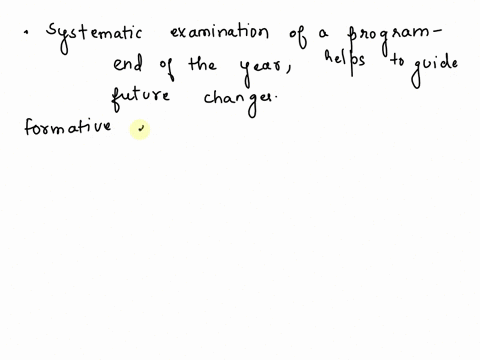 . Systematic examination of a program-
end of the year, helps to guide
future changes.
formative